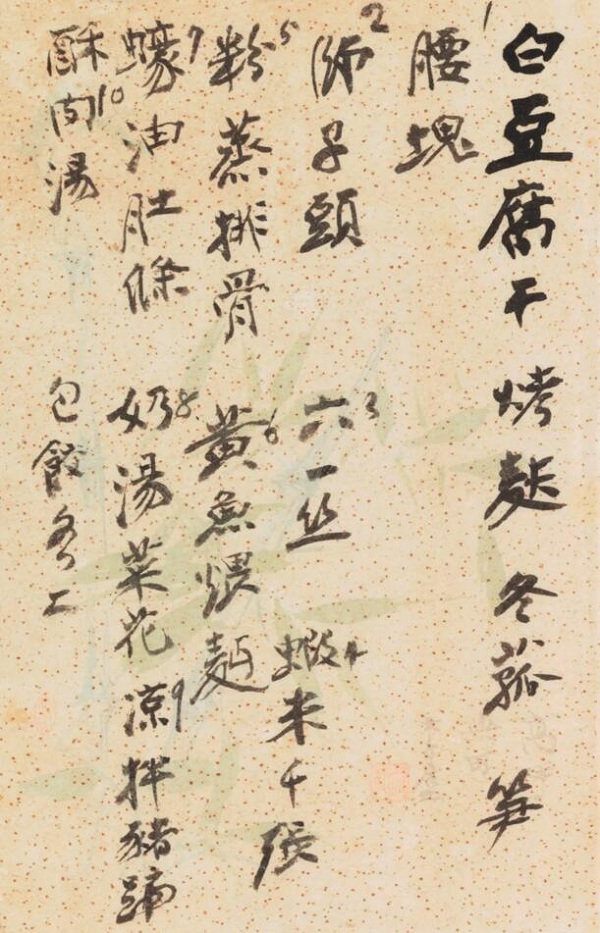 白豆腐干 烤麩 冬菰 笋
1 腰塊
2 師子頭 3 六一丝 4 蝦米千張
5 粉蒸排骨 6 黃魚煨麵
7 蠔油肚條 8 奶湯菜花 9 凉拌豬蹄
10 酥肉湯 包餃